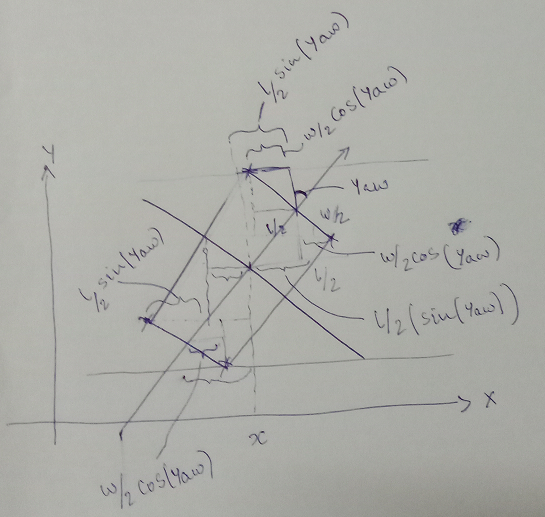 L/2 sin(Yaw)
w/2 cos(Yaw)
Y
Yaw
w/2
L/2
w/2 cos(Yaw)
L/2 sin(Yaw)
L/2
L/2 (sin(Yaw))
X
x
w/2 cos(Yaw)